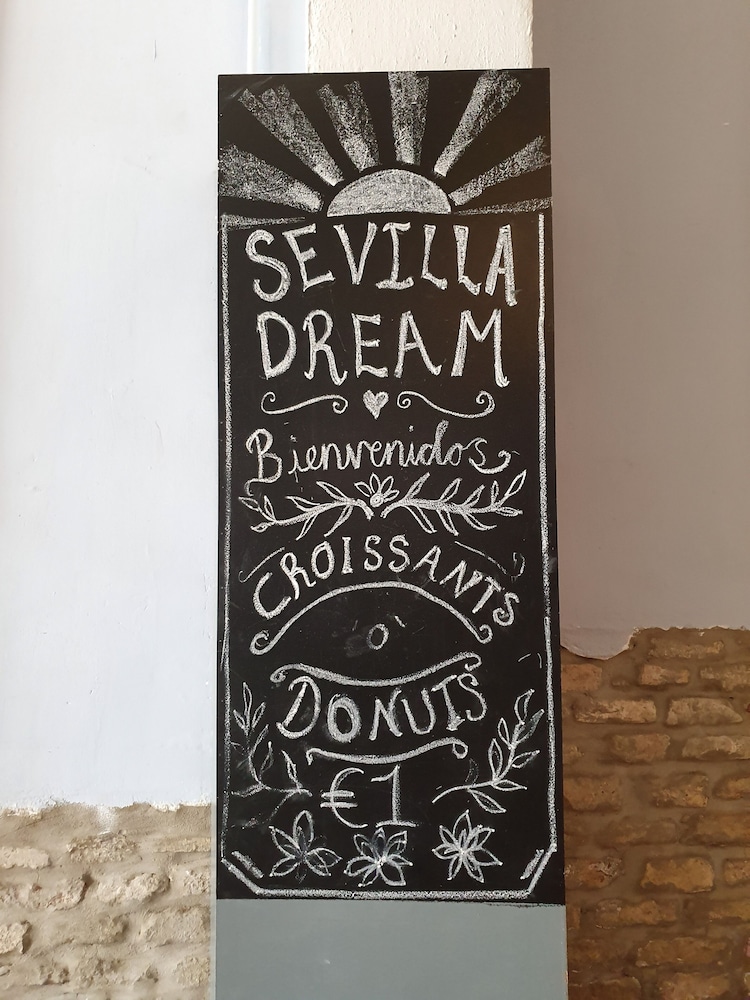 SEVILLA
DREAM
Bienvenidos
CROISSANTS
o
DONUTS
€1